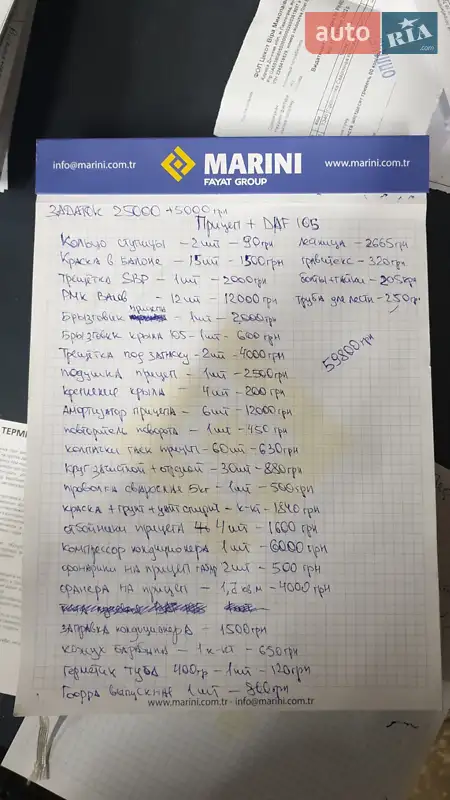 auto RIA.com
info@marini.com.tr
MARINI
FAYAT GROUP
www.marini.com.tr
ЗАДАТОК 25000 +5000грн
Прицеп + DAF 105
Кольцо ступицы - 2шт - 90грн
Краска в балоне - 15шт - 1500грн
Трещётка SBP - 1шт - 2000грн
РМК ВАИВ - 12шт - 12000грн
Брызговик прицепа - 1шт - 2000грн
Брызговик крыла 105 - 1шт - 600грн
Трещётка под заляжку - 2шт - 4000грн
подушка прицеп - 1шт - 2500грн
крепление крыла - 4шт - 200грн
Амортизатор прицепа - 6шт - 12000грн
повторитель поворота - 1шт - 450грн
колпачки гаек прицеп - 60шт - 630грн
круг зачистной + отрезной - 30шт - 880грн
проволка сварочная 5кг - 1шт - 500грн
краска + грунт + уайт спирит - к-кт - 1840грн
отбойники прицепа 4шт - 1600грн
компрессор кондиционера 1шт - 6000грн
фонарики на прицеп габар 2шт - 500грн
фанера на прицеп - 1,7 кв.м - 4000грн
заправка кондиционера - 1500грн
кожух барабана - 1к-кт - 650грн
Герметик туба 400гр - 1шт - 120грн
Гофра выпускная 1шт - 900грн
лестница - 2665грн
гравитекс - 320грн
болты+гайки - 205грн
труба для лестн - 250гр
59800грн
www.marini.com.tr - info@marini.com.tr
ТЕРМІ